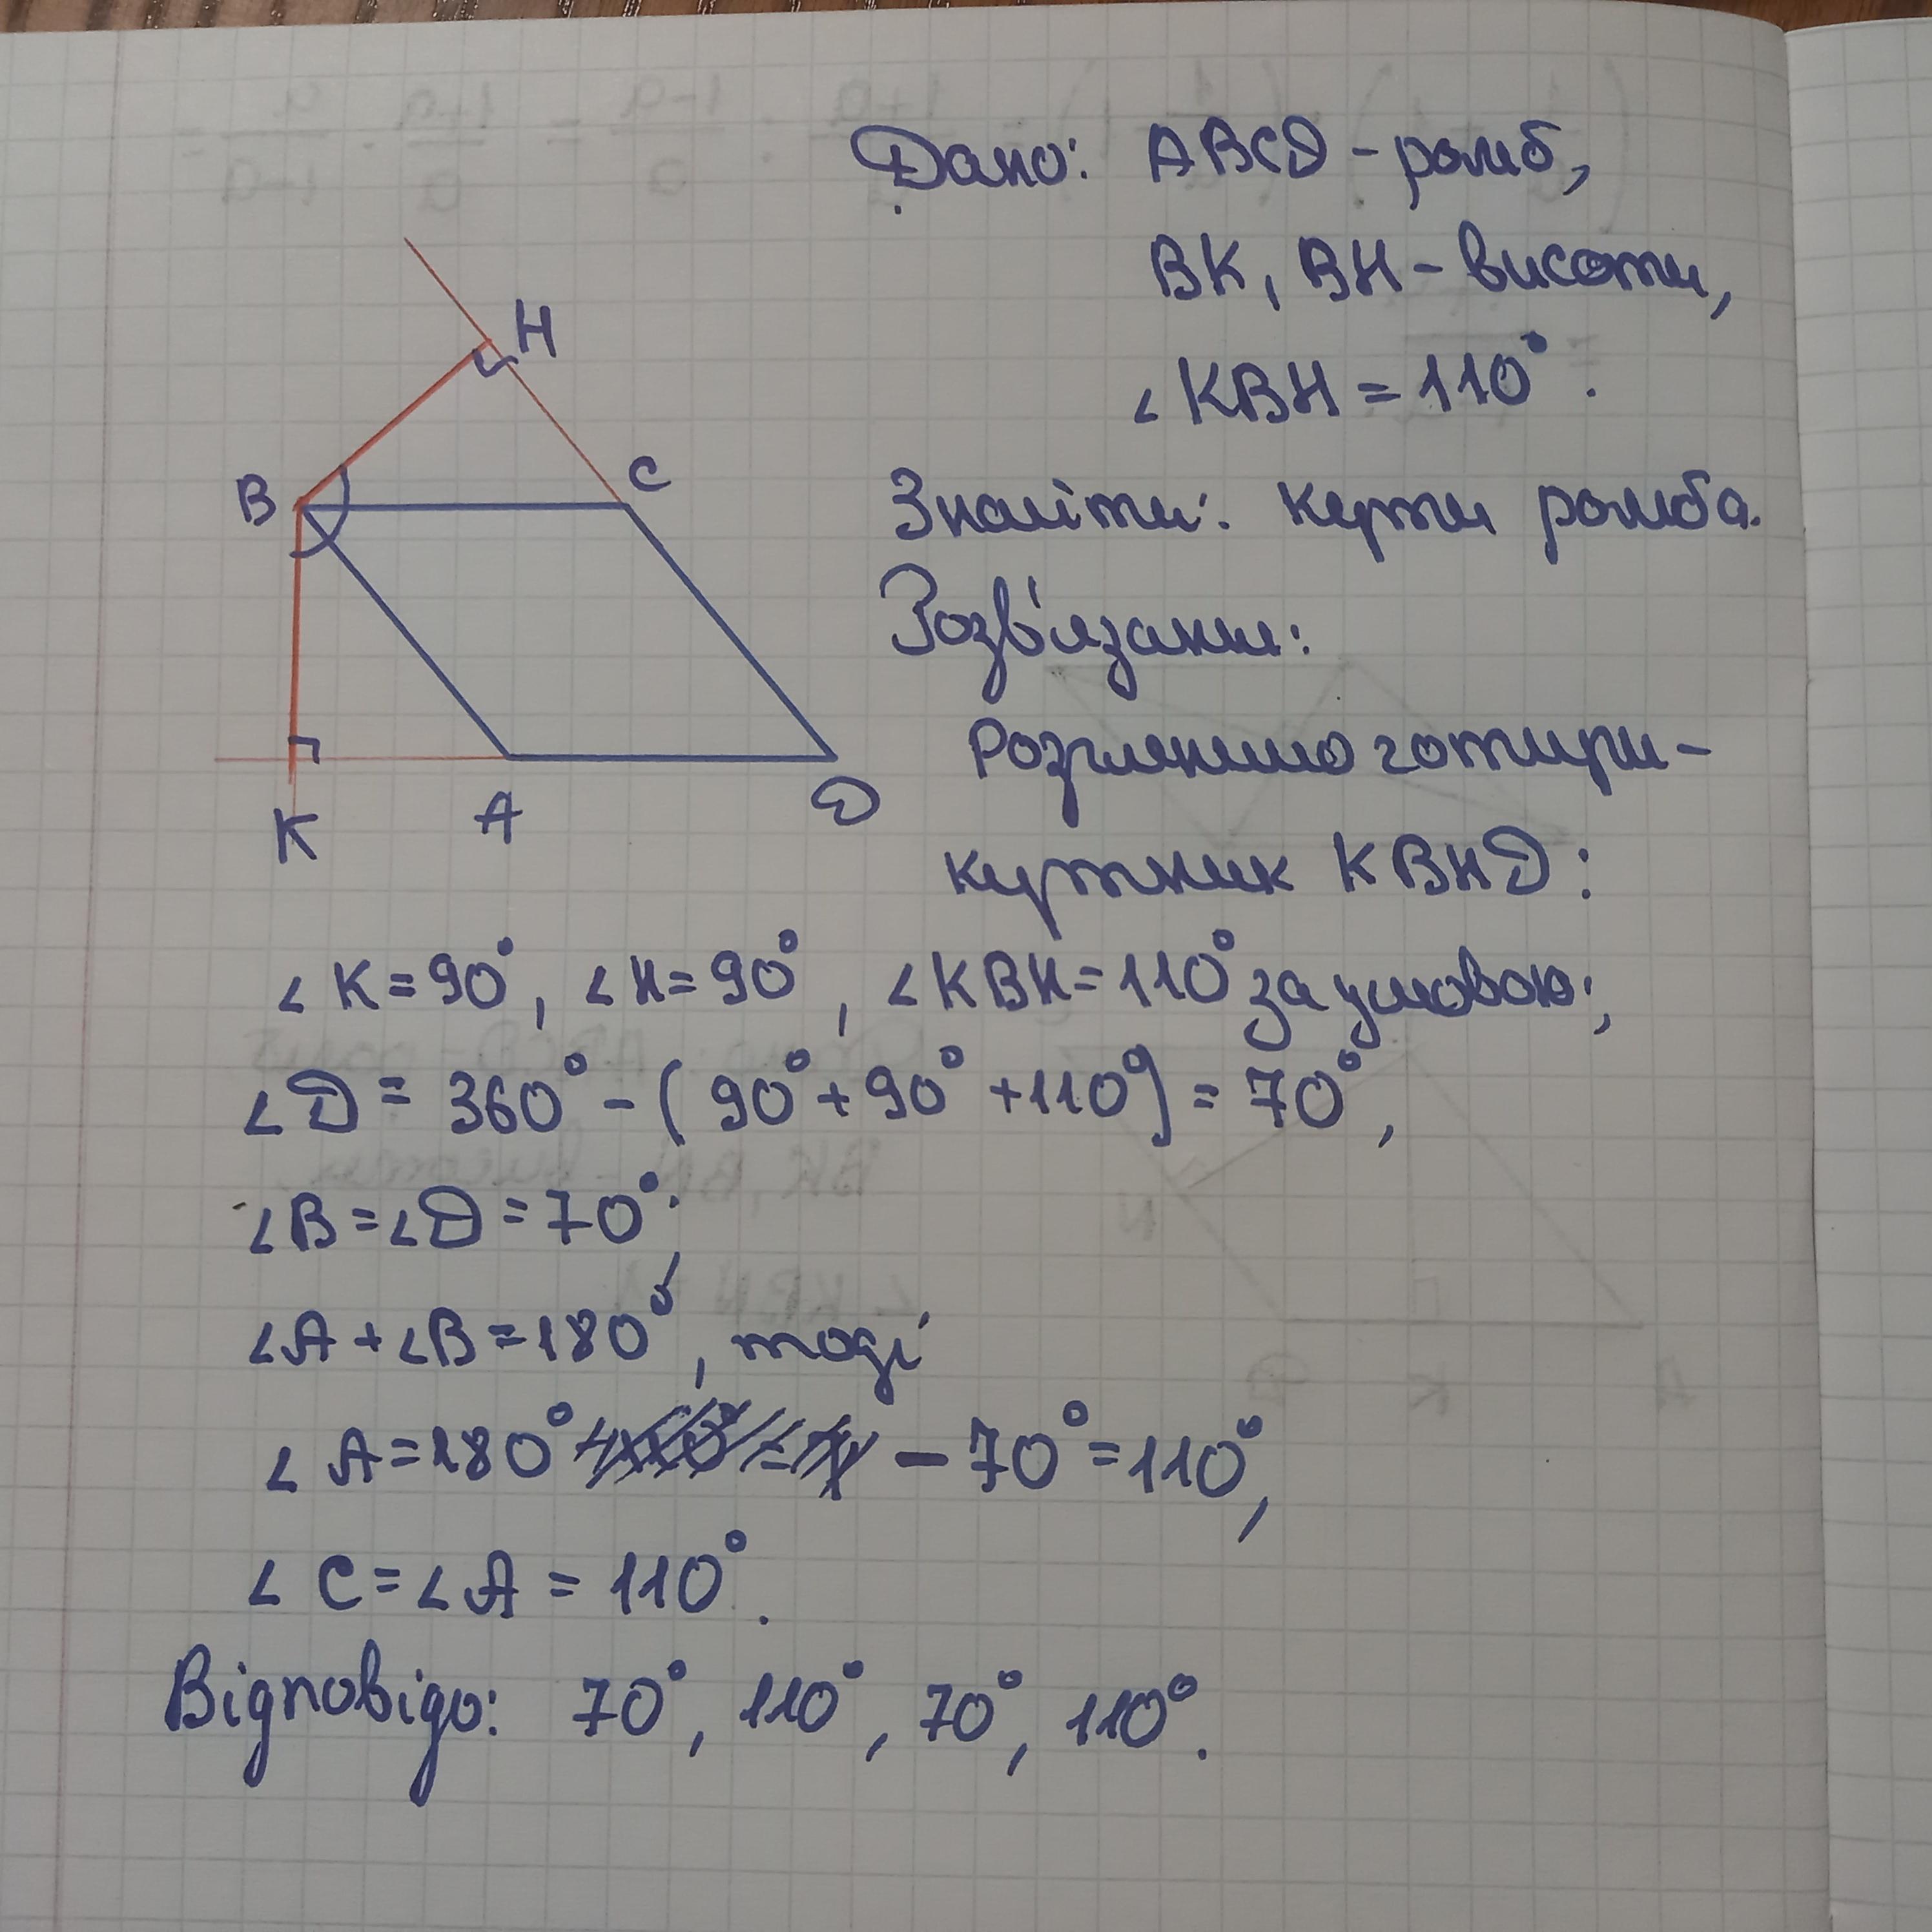 Дано: ABCD - ромб,
BK, BH - висоти,
∠KBH = 110°.
Знайти: кути ромба.
Розв'язання:
Розглянемо чотири-
кутник KBHD:
∠K = 90°, ∠H = 90°, ∠KBH = 110° за умовою;
∠D = 360° - (90° + 90° + 110°) = 70°,
∠B = ∠D = 70°;
∠A + ∠B = 180°, тоді
∠A = 180° - 70° = 110°,
∠C = ∠A = 110°.
Відповідь: 70°, 110°, 70°, 110°.
H
B
C
K
A
D